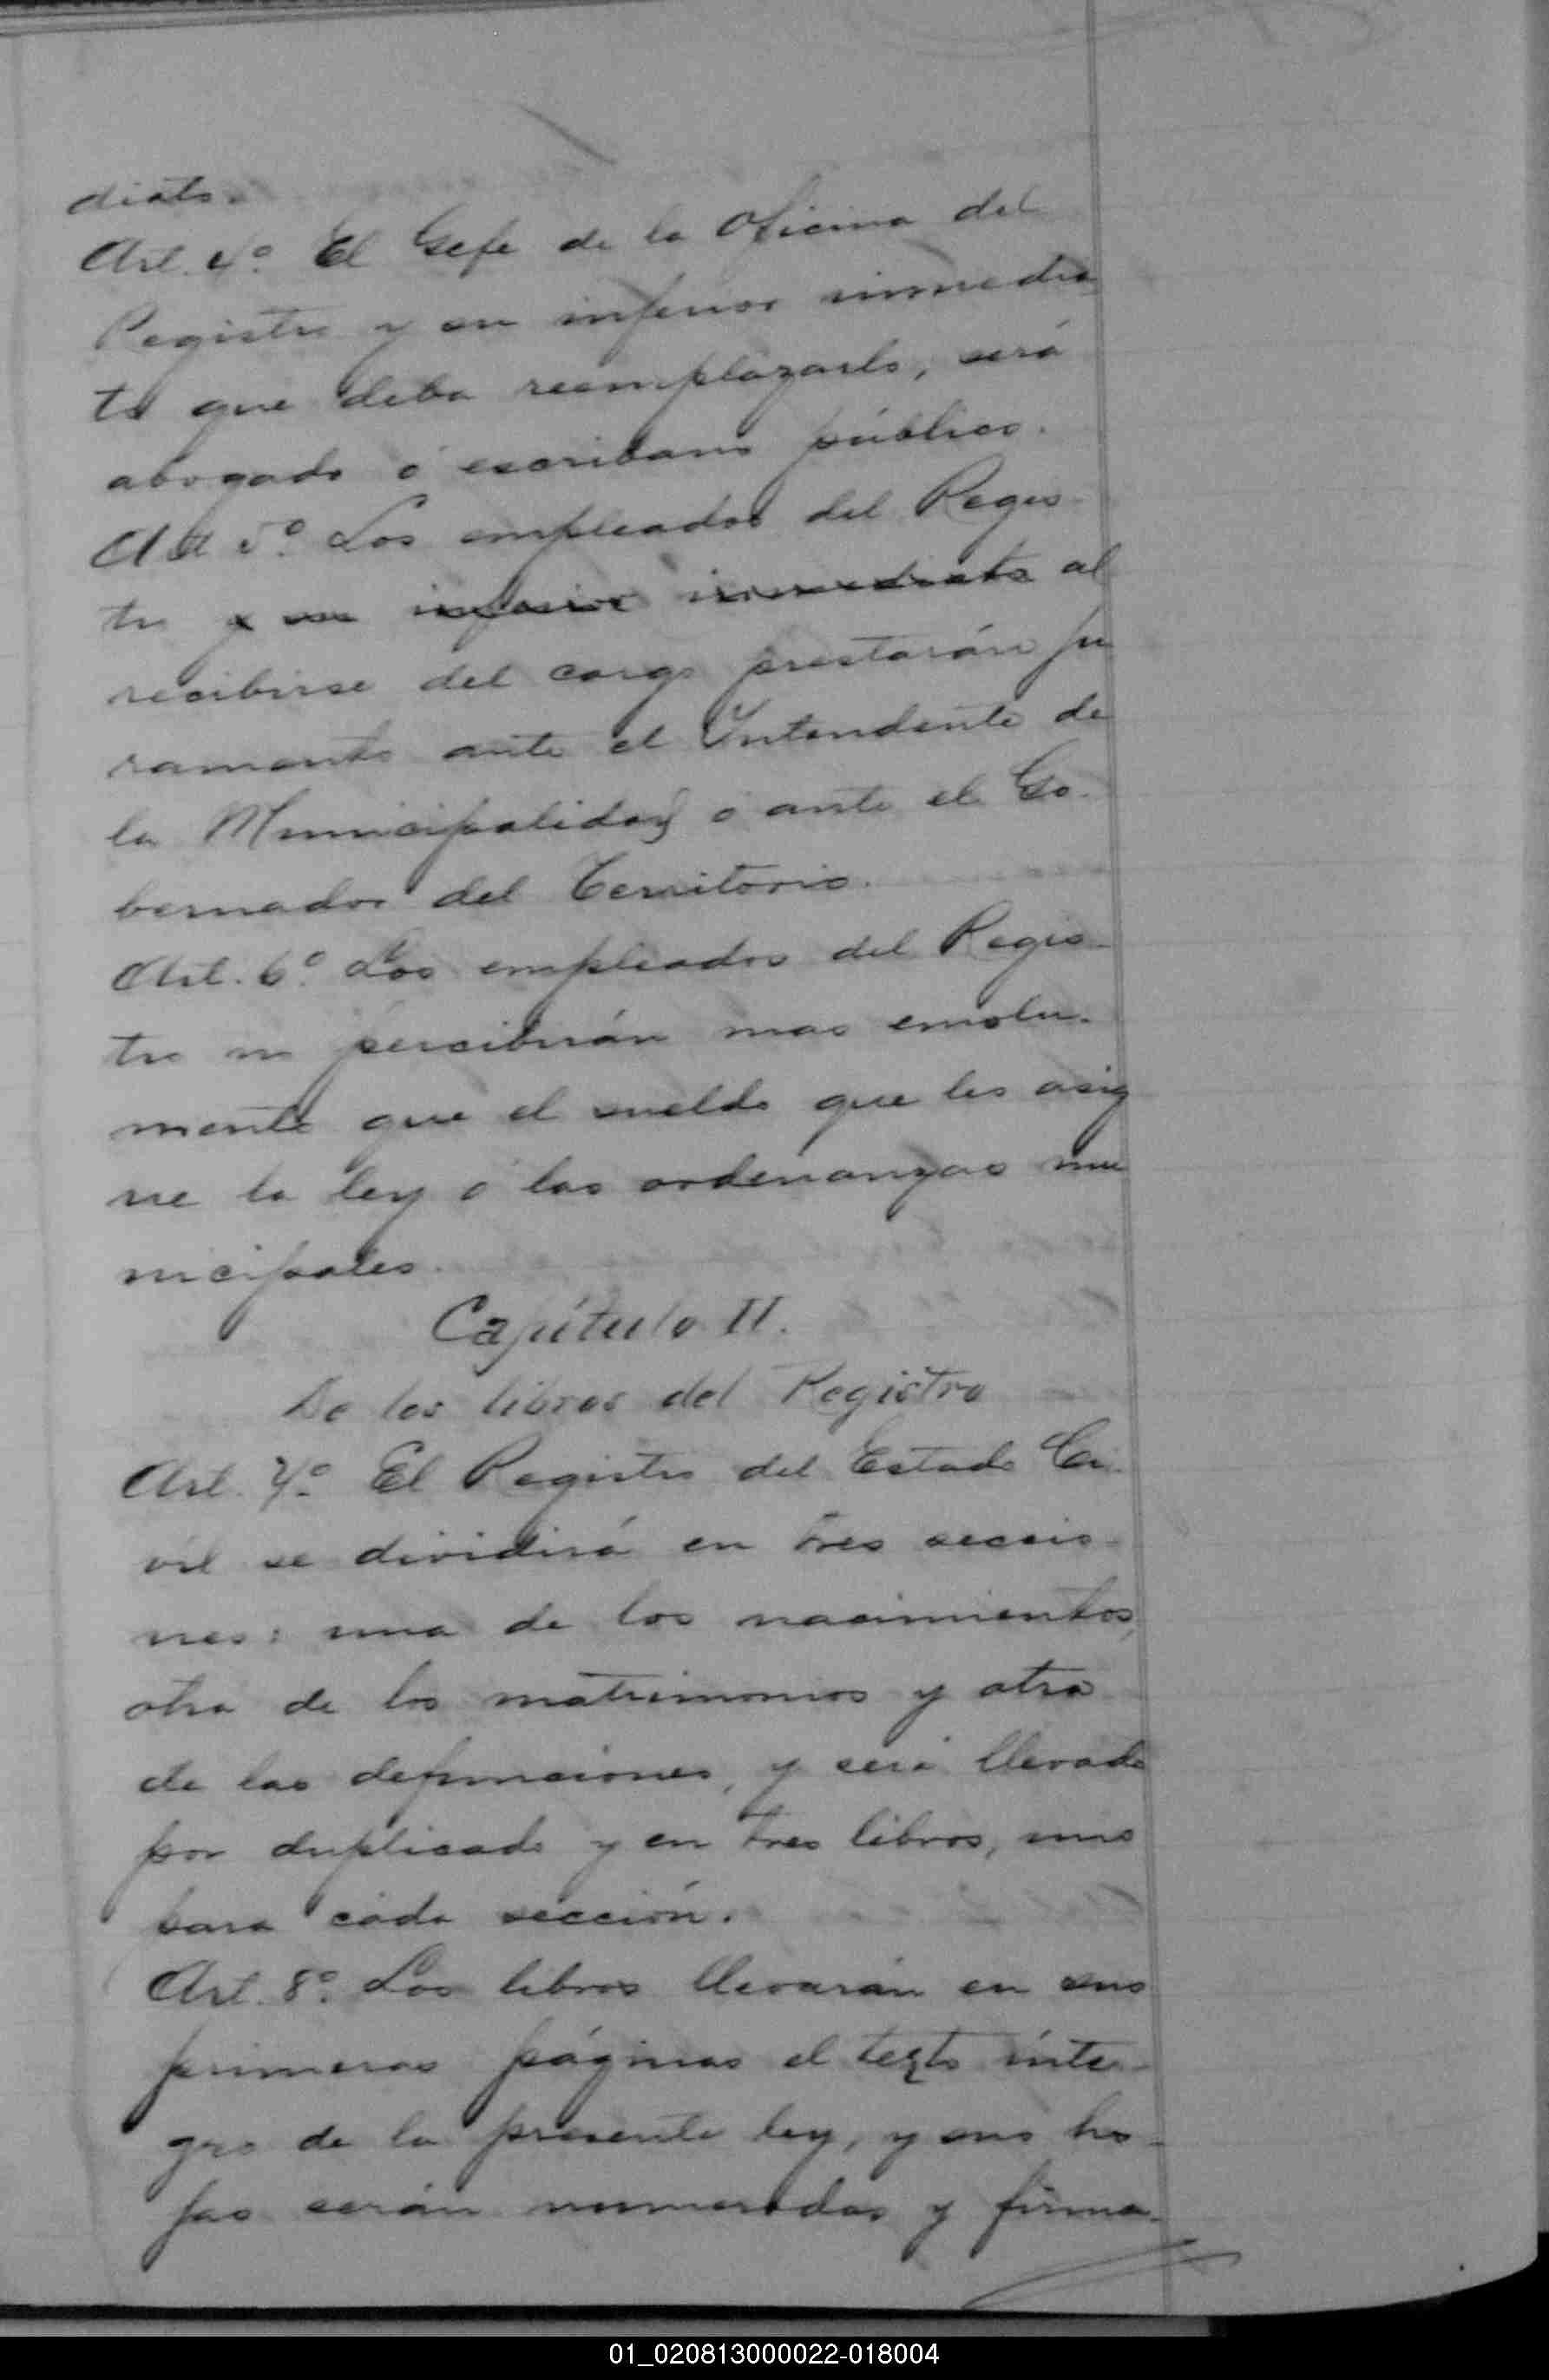 diato.
Art. 4º. El Gefe de la Oficina del
Registro y su inferior inmedia
to que deba reemplazarlo, será
abogado ó escribano público.
Art 5º. Los empleados del Regis-
tro y su inferior inmediato al
recibirse del cargo prestarán ju
ramento ante el Intendente de
la Municipalidad ó ante el Go-
bernador del Territorio.
Art. 6º. Los empleados del Regis-
tro no percibirán mas emolu-
mento que el sueldo que les asig
ne la ley ó las ordenanzas mu
nicipales.
Capítulo II.
De los libros del Registro
Art. 7º. El Registro del Estado Ci-
vil se dividirá en tres seccio-
nes: una de los nacimientos,
otra de los matrimonios y otra
de las defunciones, y será llevado
por duplicado y en tres libros, uno
para cada sección.
Art. 8º. Los libros llevarán en sus
primeras páginas el texto ínte-
gro de la presente ley, y sus ho-
jas serán numeradas y firma-
01_020813000022-018004